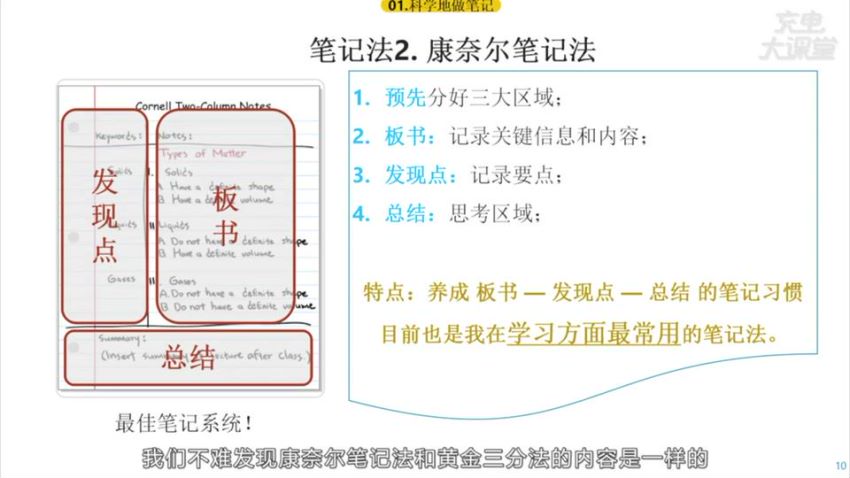 01.科学地做笔记
充电
大课堂
笔记法2. 康奈尔笔记法
Cornell Two-Column Notes
Keywords: Notes:
Types of Matter
Solids I. Solids
A. Have a definite shape
B. Have a definite volume
Liquids II. Liquids
A. Do not have a definite shape
B. Have a definite volume
Gases Gases
A. Do not have a definite shape
B. Do not have a definite volume
Summary:
(Insert summary lecture after class.)
发现点
板书
总结
最佳笔记系统！
1. 预先分好三大区域；
2. 板书：记录关键信息和内容；
3. 发现点：记录要点；
4. 总结：思考区域；
特点：养成 板书 — 发现点 — 总结 的笔记习惯
目前也是我在学习方面最常用的笔记法。
我们不难发现康奈尔笔记法和黄金三分法的内容是一样的
10